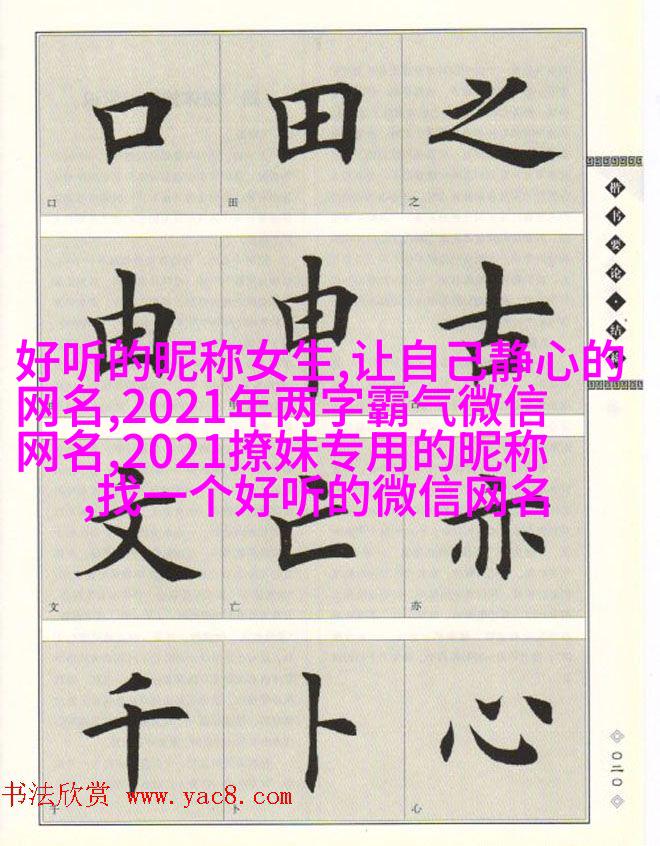 口 田 之
口 田 之
由 申 古
好听的昵称女生,让自己静心的
网名,2021年两字霸气微信
网名,2021撩妹专用的昵称
,找一个好听的微信网名
文 亡 亦
文 亡 亦
千 卜 心
千 卜 心
楷书要论·结构
〇二〇
书法欣赏 www.yac8.com